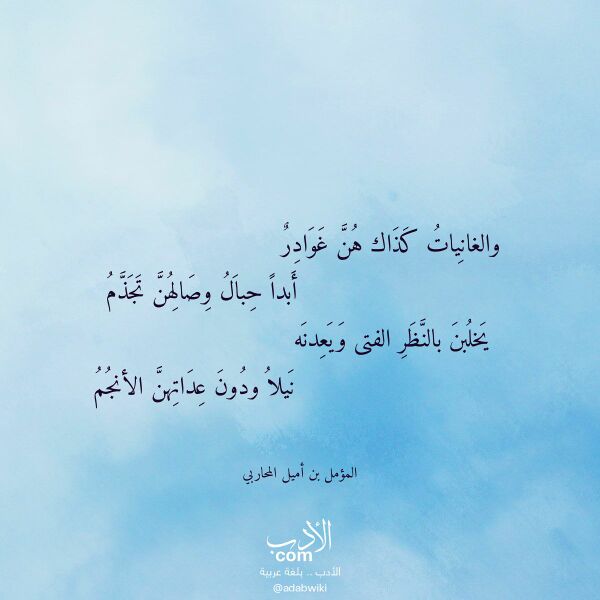 والغانِياتُ كَذَاك هُنَّ غَوَادِرٌ
أَبداً حِباَلُ وِصَالِهُنَّ تَجَذَّمُ
يَخلُبنَ بالنَّظَرِ الفتى وَيَعِدنَه
نَيلاُ ودُونَ عِدَاتِهنَّ الأنجُمُ
المؤمل بن أميل المحاربي
الأدب
com
الأدب .. بلغة عربية
@adabwiki